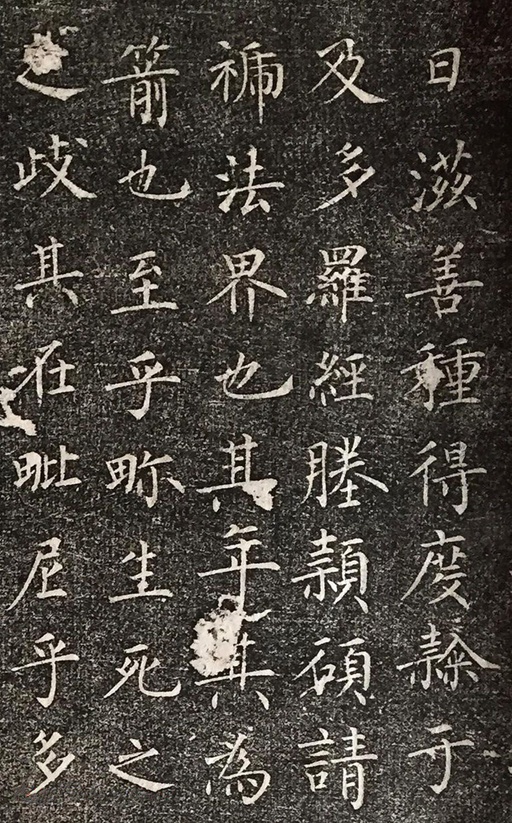 日滋善種得度于
及多羅經塍碩請
法界也其年其為
箭也至乎畛生死之
歧其在毗尼乎多